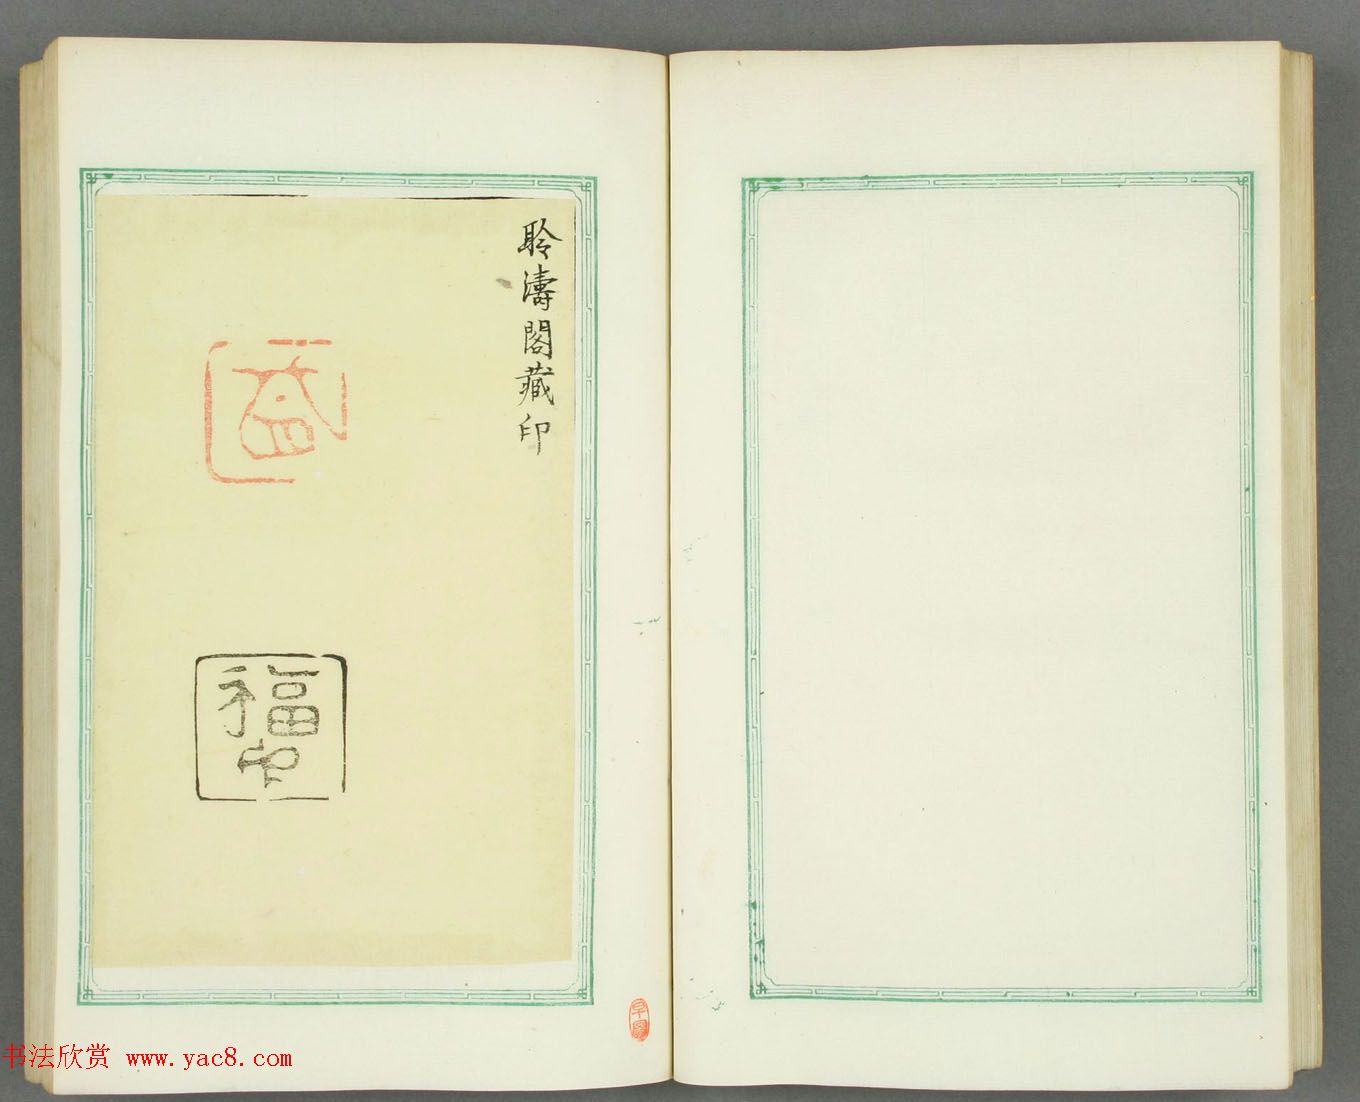 聆濤閣藏印
福印
书法欣赏 www.yac8.com